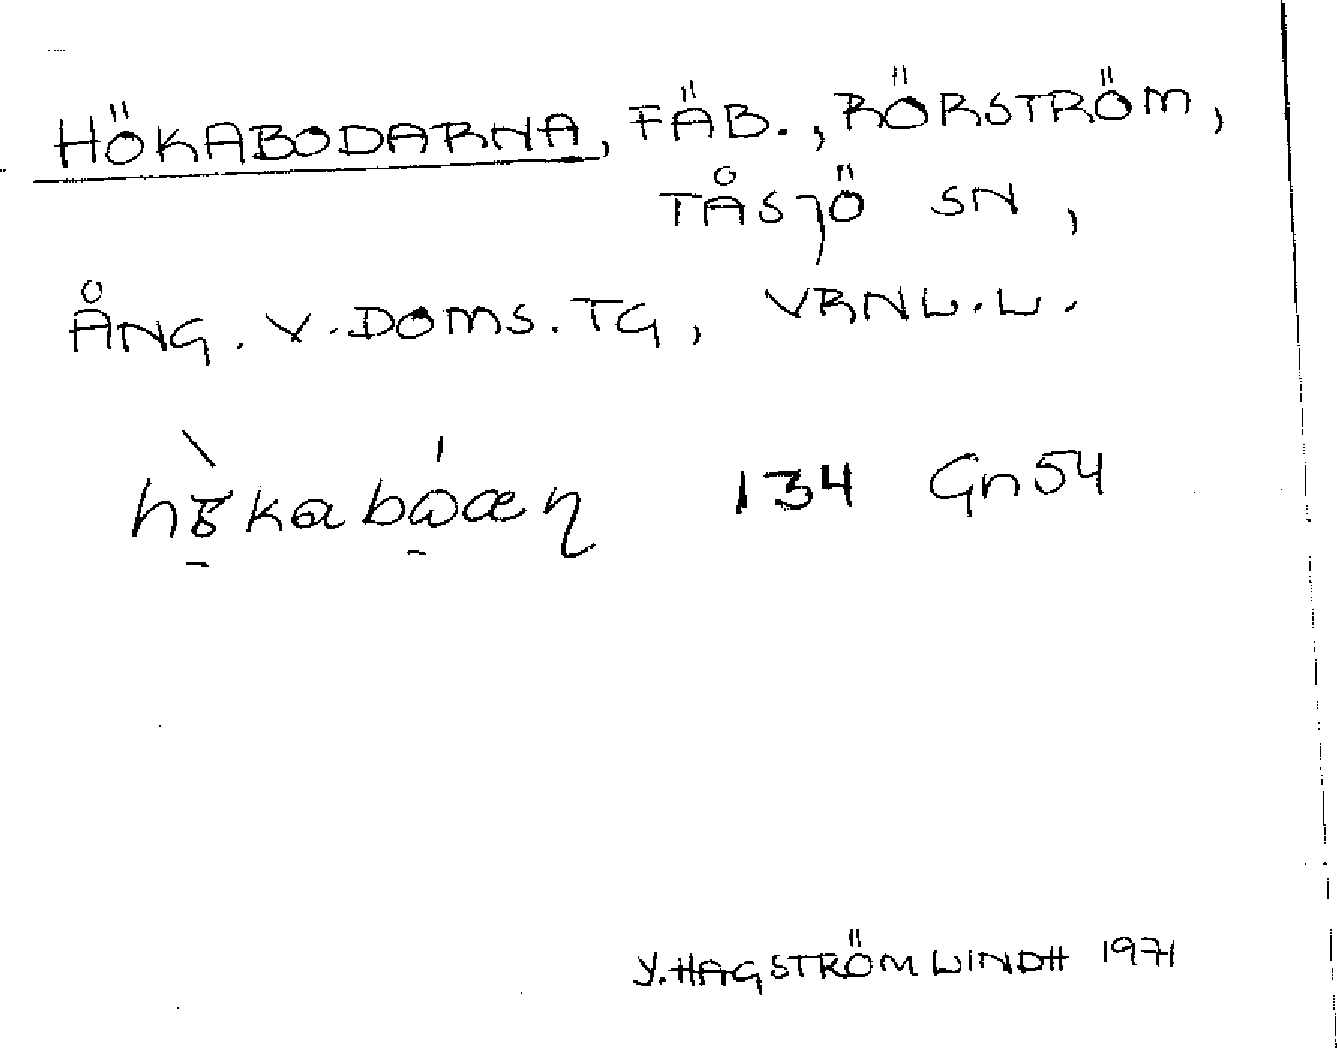 HÖKABODARNA, FÄB., RÖRSTRÖM,
TÅSJÖ SN,
ÅNG. V. DOMS. TG, VRNL. L.
134 Gn54
Y. HAGSTRÖM LINDH 1971